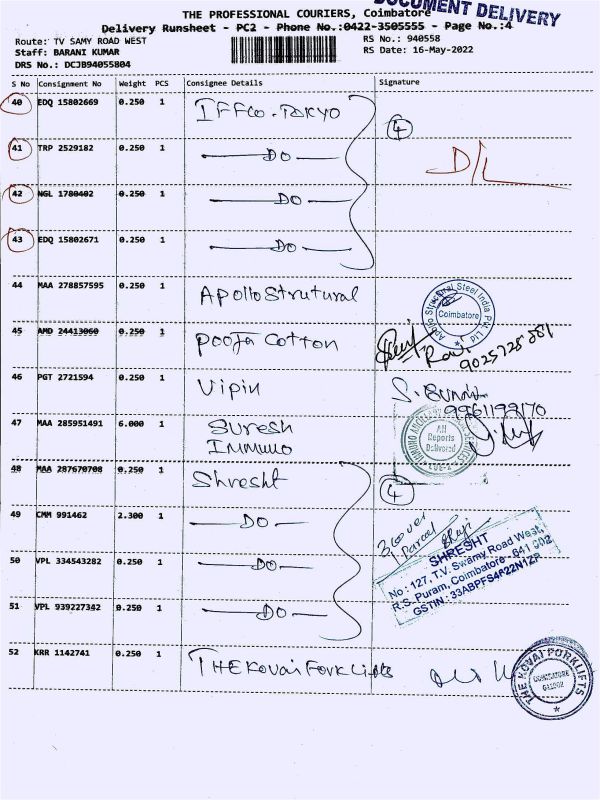 DOCUMENT DELIVERY
THE PROFESSIONAL COURIERS, Coimbatore
Delivery Runsheet - PC2 - Phone No.:0422-3505555 - Page No.:4
Route: TV SAMY ROAD WEST
RS No.: 940558
Staff: BARANI KUMAR
RS Date: 16-May-2022
DRS No.: DCJB94055804
S No Consignment No Weight PCS Consignee Details Signature
40 EDQ 15802669 0.250 1 IFFCO.TOKYO
4
41 TRP 2529182 0.250 1 DO
D/L
42 NGL 1780402 0.250 1 DO
43 EDQ 15802671 0.250 1 DO
44 MAA 278857595 0.250 1 Apollo Strutural
Apollo Structural Steel India Pvt. Ltd
Coimbatore
45 AMD 24413060 0.250 1 Pooja Cotton
Ravi
9025728881
46 PGT 2721594 0.250 1 Vipin
9961199170
47 MAA 285951491 6.000 1 Suresh
Immuno
All
Reports
Delivered
48 MAA 287670708 0.250 1 Shresht
4
49 CMM 991462 2.300 1 DO
Parcel
SHRESHT
No: 127, T.V. Swamy Road West,
R.S. Puram, Coimbatore - 641 002
GSTIN: 33ABPFS4622N1ZP
50 VPL 334543282 0.250 1 DO
51 VPL 939227342 0.250 1 DO
52 KRR 1142741 0.250 1 THE Kovai Forklifts
THE KOVAI FORKLIFTS
COIMBATORE